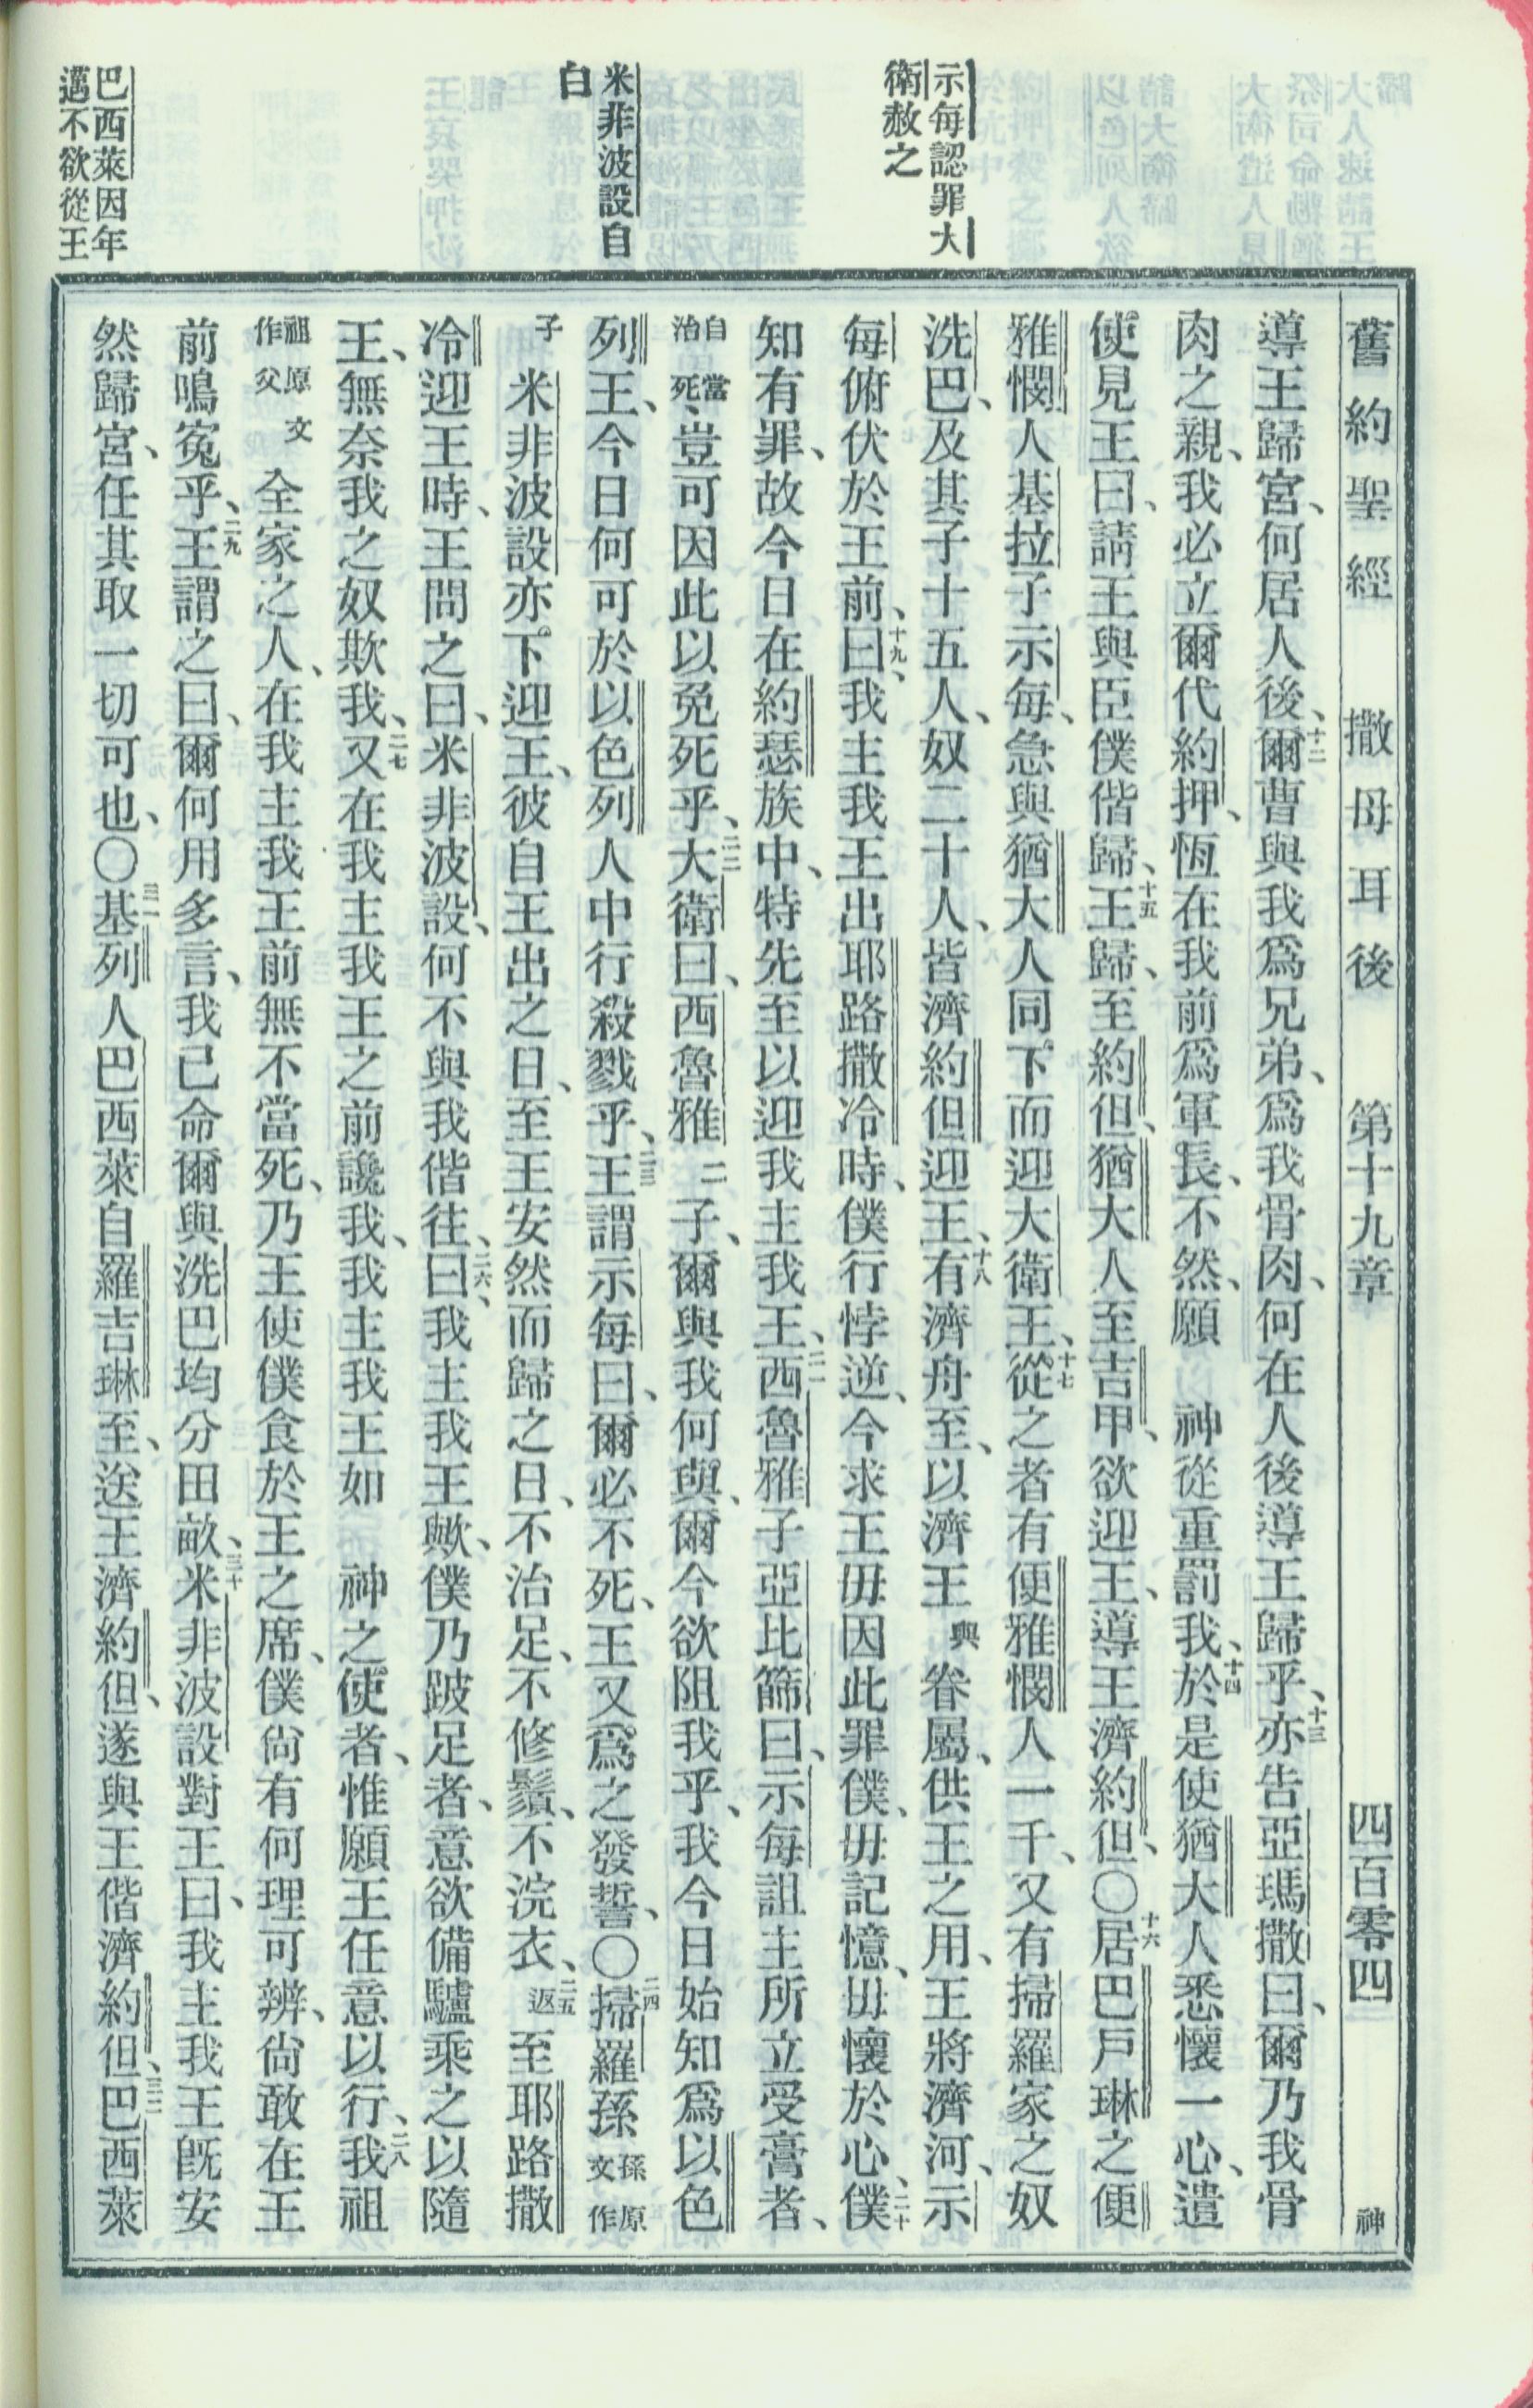 示每認罪大
衛赦之
米非波設自
白
巴西萊因年
邁不欲從王
舊約聖經　撒母耳後　第十九章　四百零四　神
導王歸宮、何居人後、十二爾曹與我爲兄弟、爲我骨肉、何在人後導王歸乎、十三亦告亞瑪撒曰、爾乃我骨
肉之親、我必立爾代約押、恆在我前爲軍長、不然、願　神從重罰我、十四於是使猶大人悉懷一心、遣
使見王曰、請王與臣僕偕歸、十五王歸、至約但、猶大人至吉甲、欲迎王、導王濟約但、〇十六居巴戸琳之便
雅憫人基拉子示每、急與猶大人同下而迎大衛王、十七從之者有便雅憫人一千、又有掃羅家之奴
洗巴、及其子十五人、奴二十人、皆濟約但迎王、十八有濟舟至、以濟王與眷屬、供王之用、王將濟河、示
每俯伏於王前、十九曰、我主我王出耶路撒冷時、僕行悖逆、今求王毋因此罪僕、毋記憶、毋懷於心、二十僕
知有罪、故今日在約瑟族中、特先至以迎我主我王、二一西魯雅子亞比篩曰、示每詛主所立受膏者、
自當治死、豈可因此以免死乎、二二大衛曰、西魯雅二子、爾與我何與、爾今欲阻我乎、我今日始知爲以色
列王、今日何可於以色列人中行殺戮乎、二三王謂示每曰、爾必不死、王又爲之發誓、〇二四掃羅孫孫原文作
子米非波設亦下迎王、彼自王出之日、至王安然而歸之日、不治足、不修鬚、不浣衣、二五返至耶路撒
冷迎王時、王問之曰、米非波設、何不與我偕往、二六曰、我主我王歟、僕乃跛足者、意欲備驢乘之以隨
王、無奈我之奴欺我、二七又在我主我王之前讒我、我主我王如　神之使者、惟願王任意以行、二八我祖
祖原文作父全家之人、在我主我王前無不當死、乃王使僕食於王之席、僕尙有何理可辨、尙敢在王
前鳴冤乎、二九王謂之曰、爾何用多言、我已命爾與洗巴均分田畝、三十米非波設對王曰、我主我王旣安
然歸宮、任其取一切可也、〇三一基列人巴西萊自羅吉琳至、送王濟約但、遂與王偕濟約但、三二巴西萊